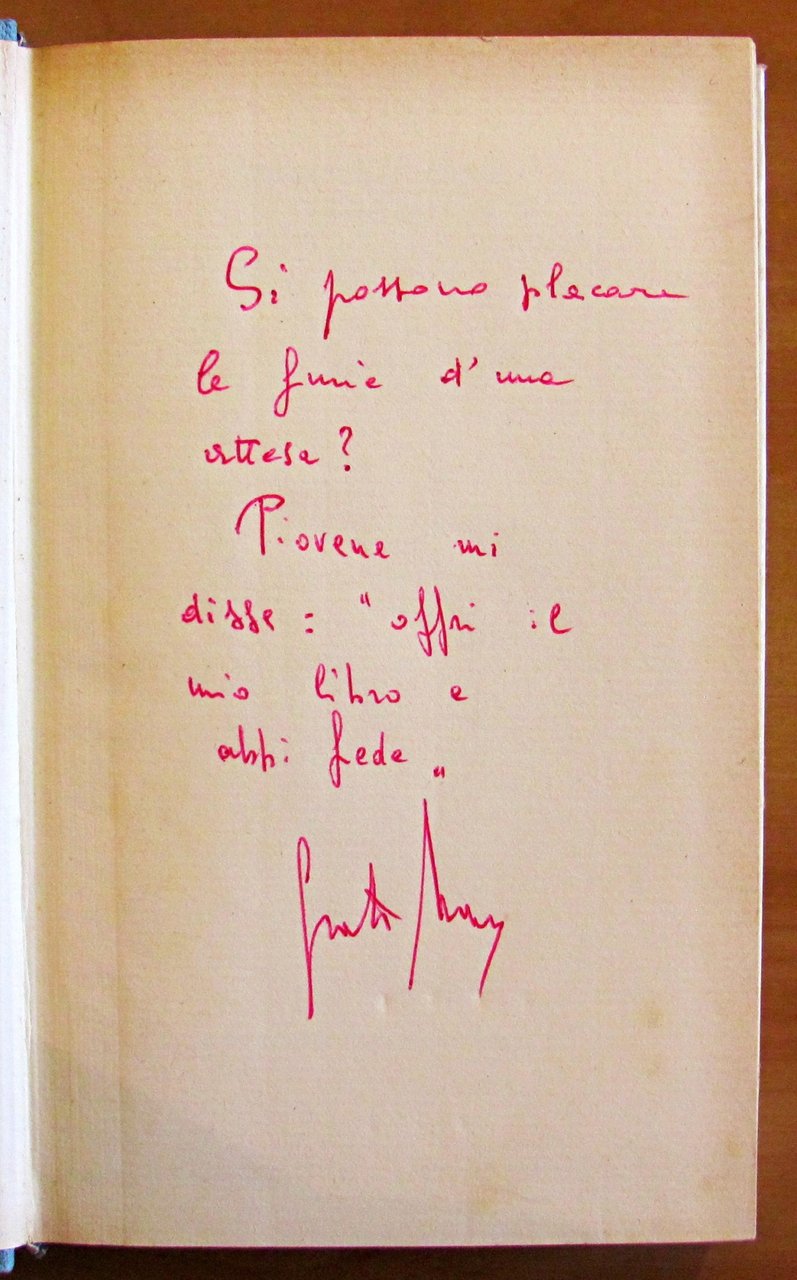 Si possono placare
le furie d'una
attesa?
Piovene mi
disse: "offri il
mio libro e
abbi fede"